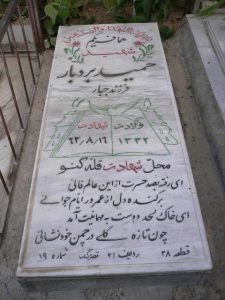 هما فیلم
شهید
حمید بردبار
فرزند جبار
ولادت شهادت
۱۳۳۲ ۶۲/۸/۱۶
محل شهادت قله گنو
ای رفته بصد حسرت از این عالم فانی
برکنده دل از عمر در ایام جوانی
ای خاک لحد دوست به مهمانیت آمد
چون تازه گلی در چمن خود نشانی
قطعه ۲۸ ردیف ۲۱ شماره ۱۹